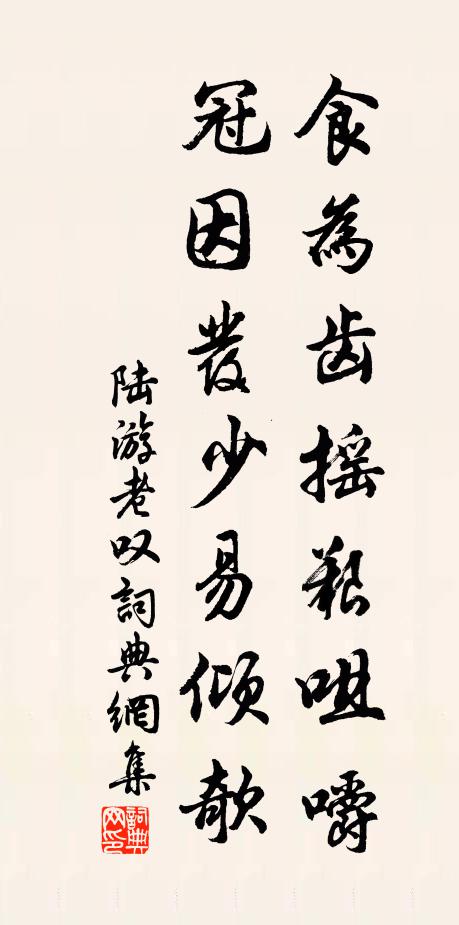 食為齒摇艱咀嚼
冠因發少易傾欹
陆游老叹詞典網集
詞典網印